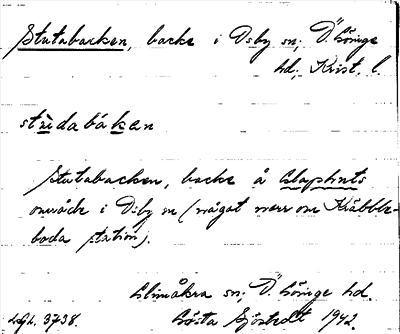 Stutabacken, backe i Ö:by sn; Ö. Göinge
hd; Krist. l.
studabákan
Stutabacken, backe å Claphults
område i Ö:by sn (något norr om Kräbble-
boda station).
Glimåkra sn; Ö. Göinge hd.
LGL. 3738. Gösta Sjöstedt 1942.